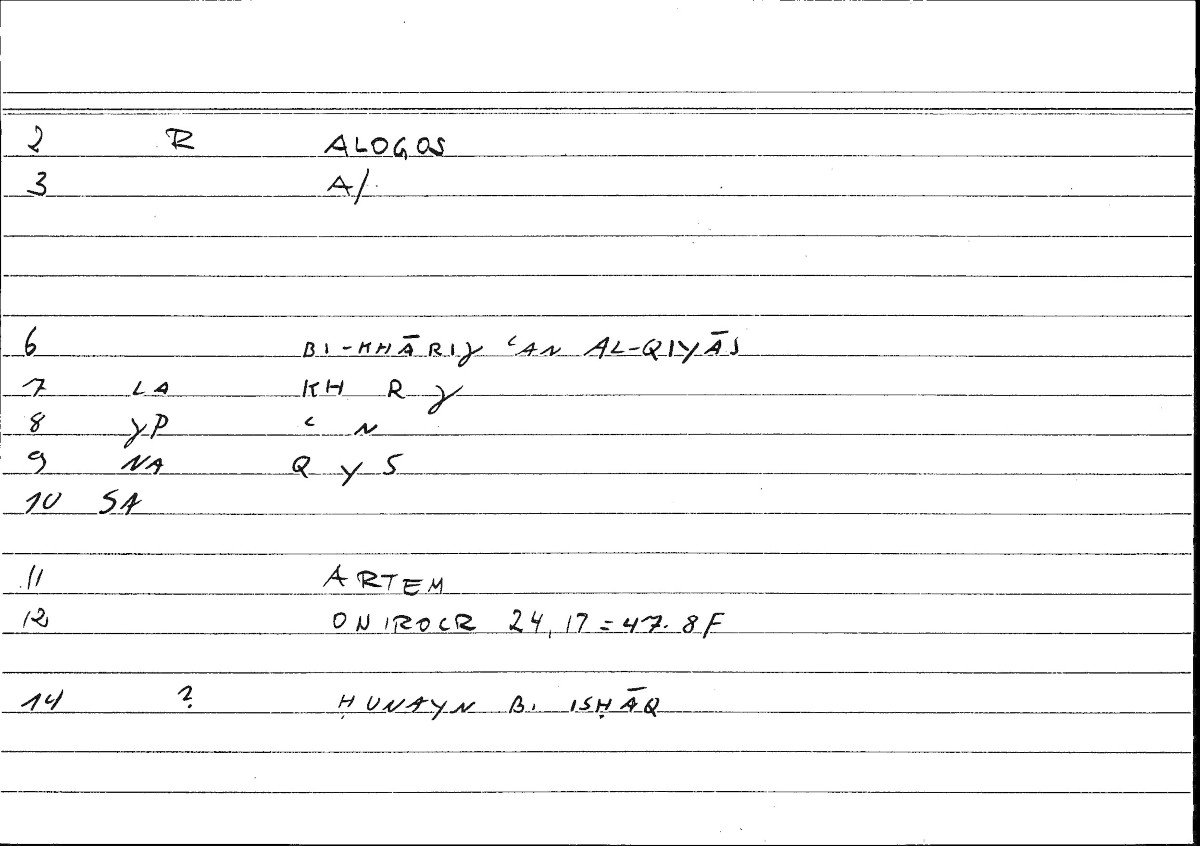 2 R ALOGOS
3 A/.
6 BI-KHĀRIJ ʿAN AL-QIYĀS
7 LA KH R J
8 YP ʿ N
9 NA Q Y S
10 SA
11 ARTEM
12 ONIROCR 24,17=47.8F
14 ? ḤUNAYN B. ISḤĀQ